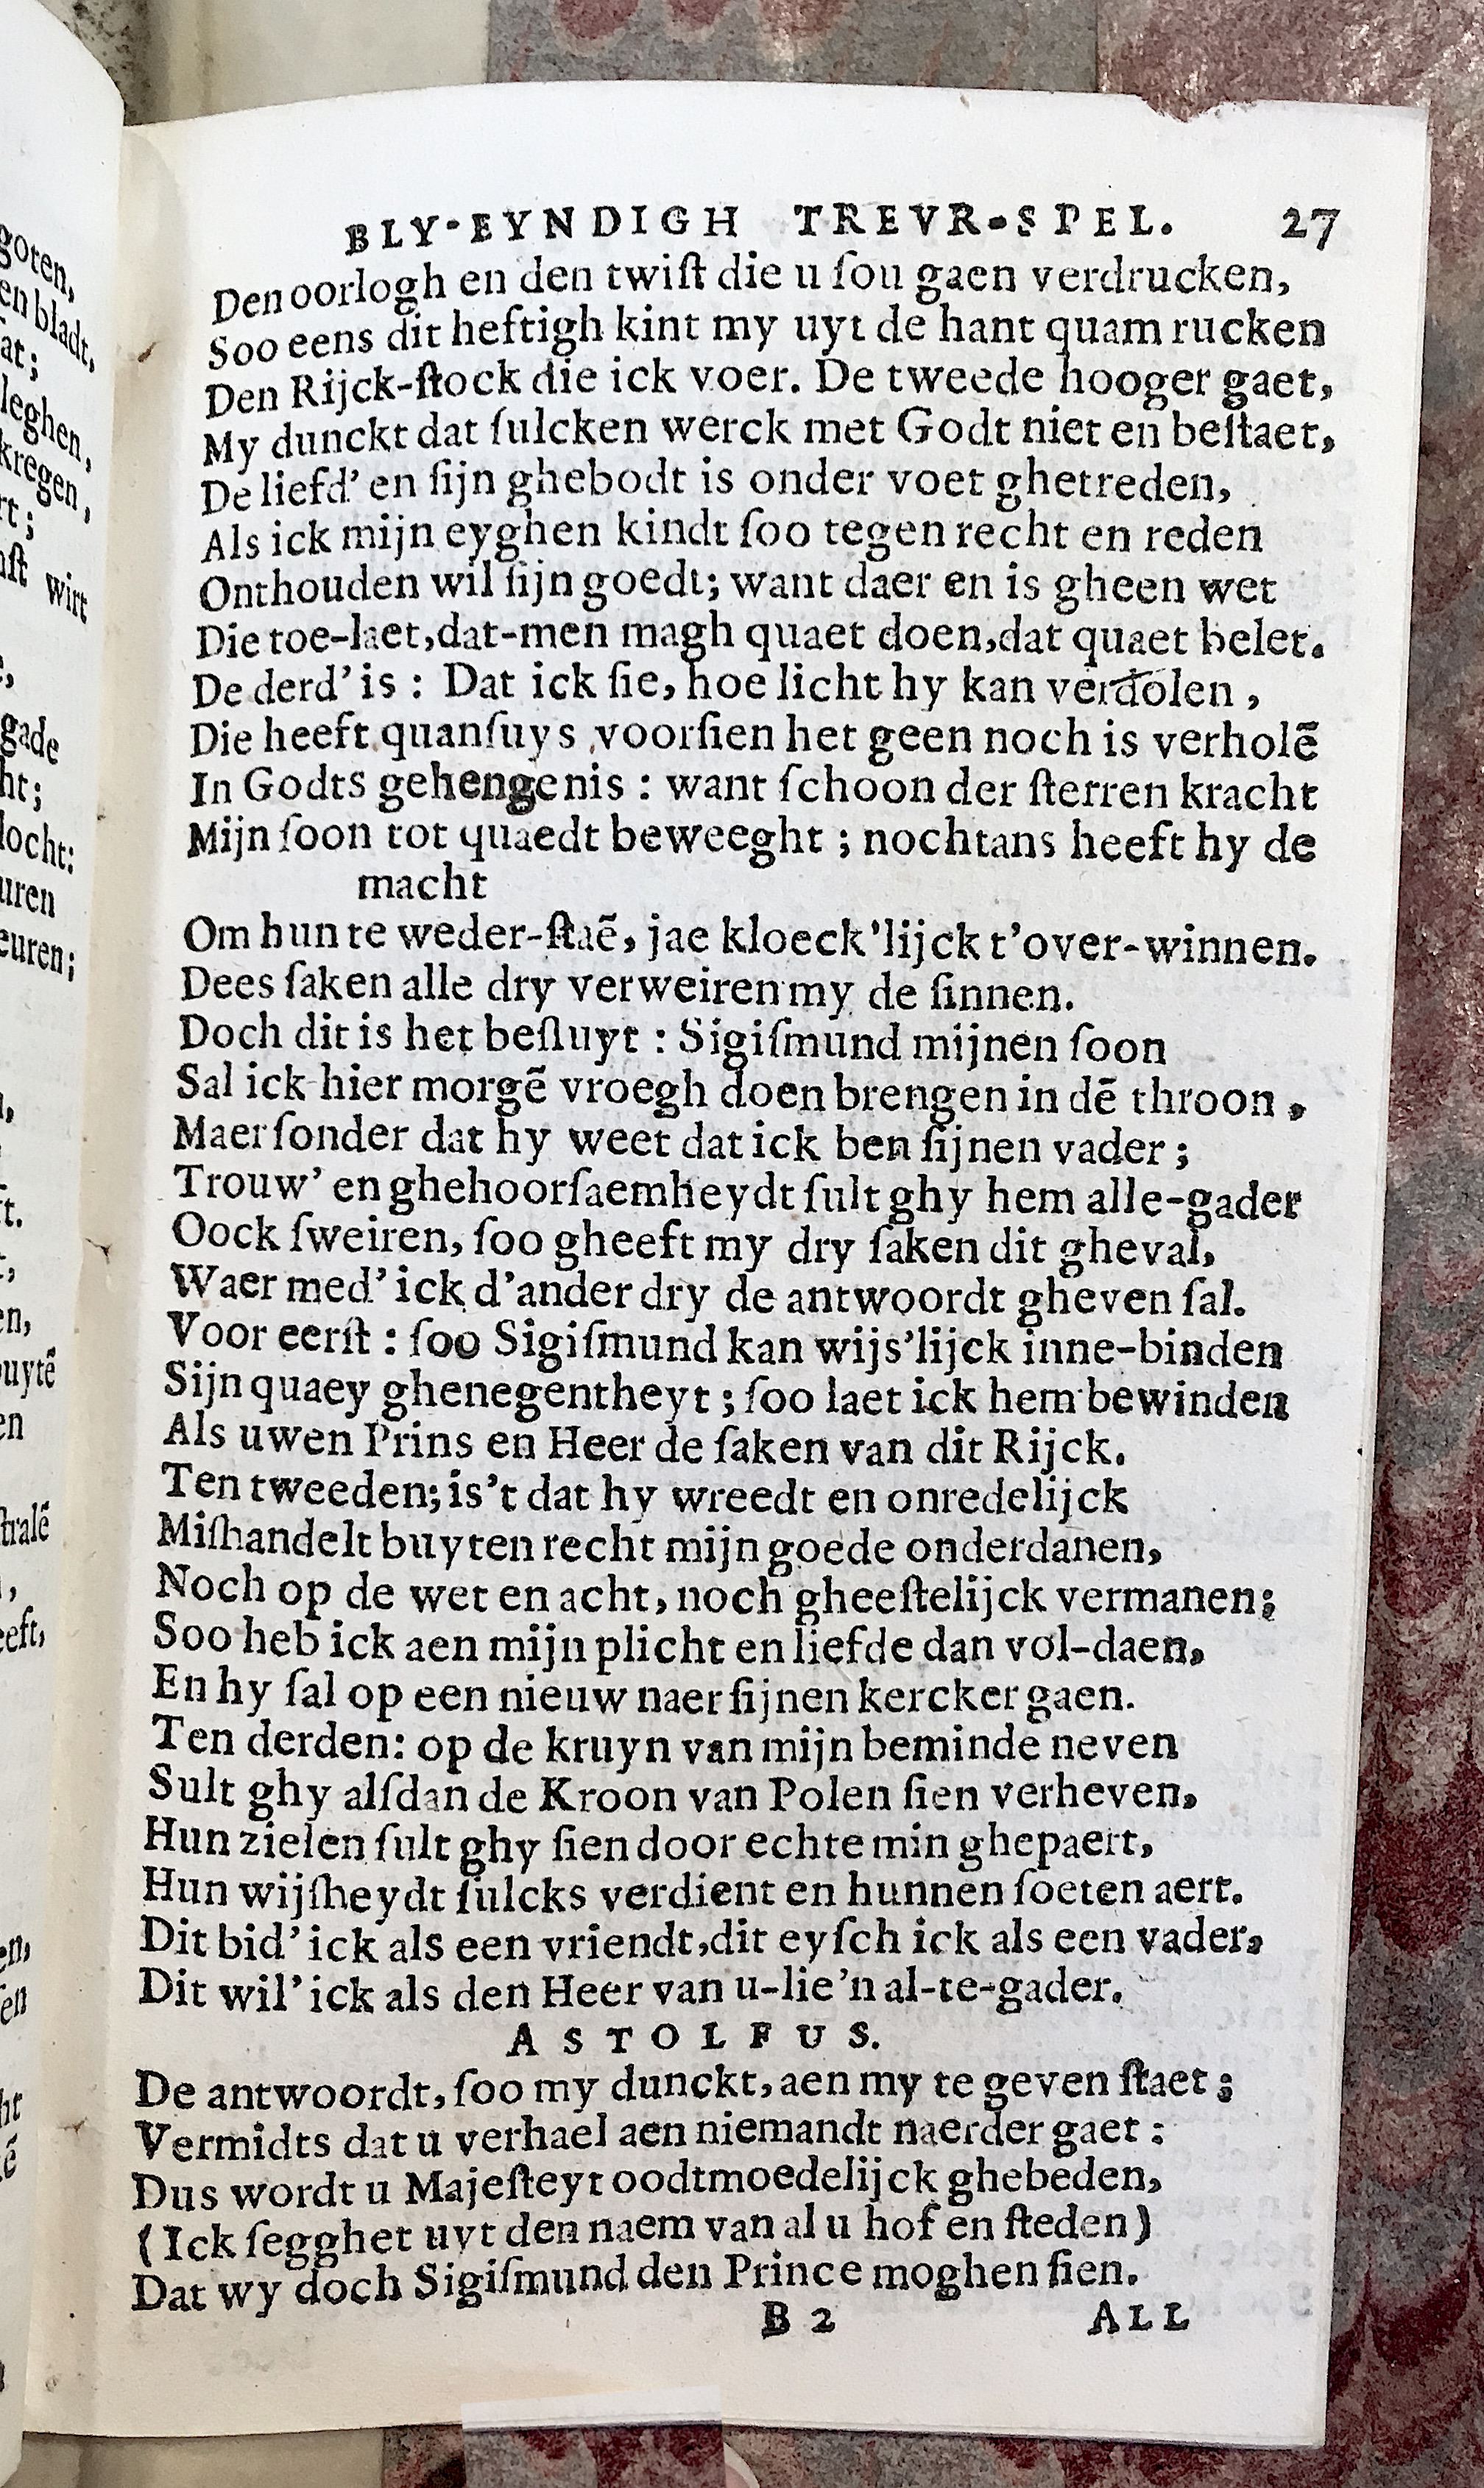 BLY-EYNDIGH TREVR-SPEL. 27
Den oorlogh en den twiſt die u ſou gaen verdrucken,
Soo eens dit heftigh kint my uyt de hant quam rucken
Den Rijck-ſtock die ick voer. De tweede hooger gaet,
My dunckt dat ſulcken werck met Godt niet en beſtaet,
De liefd' en ſijn ghebodt is onder voet ghetreden,
Als ick mijn eyghen kindt ſoo tegen recht en reden
Onthouden wil ſijn goedt; want daer en is gheen wet
Die toe-laet, dat-men magh quaet doen, dat quaet belet.
De derd' is : Dat ick ſie, hoe licht hy kan verdolen ,
Die heeft quanſuys voorſien het geen noch is verholẽ
In Godts gehengenis : want ſchoon der ſterren kracht
Mijn ſoon tot quaedt beweeght ; nochtans heeft hy de
macht
Om hun te weder-ſtaẽ, jae kloeck'lijck t'over-winnen.
Dees ſaken alle dry verweiren my de ſinnen.
Doch dit is het beſluyt : Sigiſmund mijnen ſoon
Sal ick hier morgẽ vroegh doen brengen in dẽ throon ,
Maer ſonder dat hy weet dat ick ben ſijnen vader ;
Trouw' en ghehoorſaemheydt ſult ghy hem alle-gader
Oock ſweiren, ſoo gheeft my dry ſaken dit gheval,
Waer med' ick d'ander dry de antwoordt gheven ſal.
Voor eerſt : ſoo Sigiſmund kan wijs'lijck inne-binden
Sijn quaey ghenegentheyt ; ſoo laet ick hem bewinden
Als uwen Prins en Heer de ſaken van dit Rijck.
Ten tweeden; is't dat hy wreedt en onredelijck
Miſhandelt buyten recht mijn goede onderdanen,
Noch op de wet en acht, noch gheeſtelijck vermanen;
Soo heb ick aen mijn plicht en liefde dan vol-daen,
En hy ſal op een nieuw naer ſijnen kercker gaen.
Ten derden: op de kruyn van mijn beminde neven
Sult ghy alſdan de Kroon van Polen ſien verheven,
Hun zielen ſult ghy ſien door echte min ghepaert,
Hun wijſheydt ſulcks verdient en hunnen ſoeten aert.
Dit bid' ick als een vriendt, dit eyſch ick als een vader,
Dit wil' ick als den Heer van u-lie'n al-te-gader.
ASTOLFUS.
De antwoordt, ſoo my dunckt, aen my te geven ſtaet ;
Vermidts dat u verhael aen niemandt naerder gaet :
Dus wordt u Majeſteyt oodtmoedelijck ghebeden,
(Ick ſegghet uyt den naem van al u hof en ſteden)
Dat wy doch Sigiſmund den Prince moghen ſien.
B 2 ALL